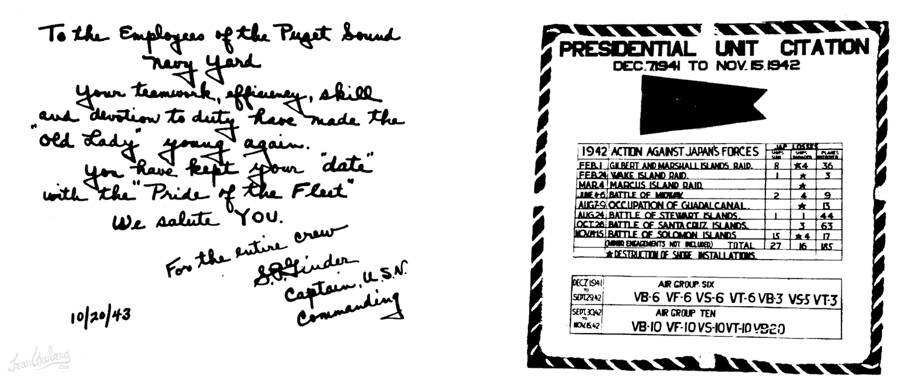 To the Employees of the Puget Sound
Navy Yard
Your teamwork, efficiency, skill
and devotion to duty have made the
"Old Lady" young again.
You have kept your "date"
with the "Pride of the Fleet"
We salute YOU.
For the entire crew
S.P. Ginder
Captain, U.S.N.
Commanding
10/20/43
PRESIDENTIAL UNIT CITATION
DEC.7,1941 TO NOV.15,1942
JAP LOSSES
1942 ACTION AGAINST JAPAN'S FORCES SHIPS SUNK SHIPS DAMAGED PLANES DESTROYED
FEB.1 GILBERT AND MARSHALL ISLANDS RAID. 8 *4 36
FEB.24 WAKE ISLAND RAID. 1 * 3
MAR.4 MARCUS ISLAND RAID. *
JUNE 4-6 BATTLE OF MIDWAY. 2 4 9
AUG.7-9 OCCUPATION OF GUADALCANAL. * 13
AUG.24 BATTLE OF STEWART ISLANDS. 1 1 44
OCT.26 BATTLE OF SANTA CRUZ ISLANDS. 3 63
NOV.14-15 BATTLE OF SOLOMON ISLANDS 15 *4 17
(MINOR ENGAGEMENTS NOT INCLUDED) TOTAL 27 16 185
* DESTRUCTION OF SHORE INSTALLATIONS.
DEC.7,1941 TO SEPT.29,42 AIR GROUP SIX
VB-6 VF-6 VS-6 VT-6 VB-3 VS-5 VT-3
SEPT.30,42 TO NOV.15,42 AIR GROUP TEN
VB-10 VF-10 VS-10 VT-10 VB20